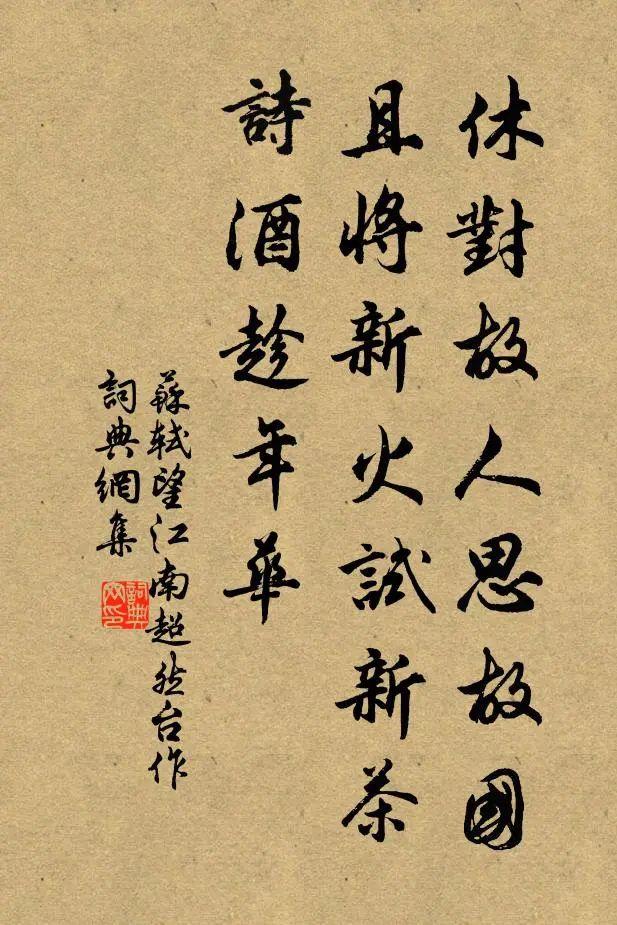 休對故人思故國
且將新火試新茶
詩酒趁年華
蘇軾望江南超然台作
詞典網集
詞典
网印